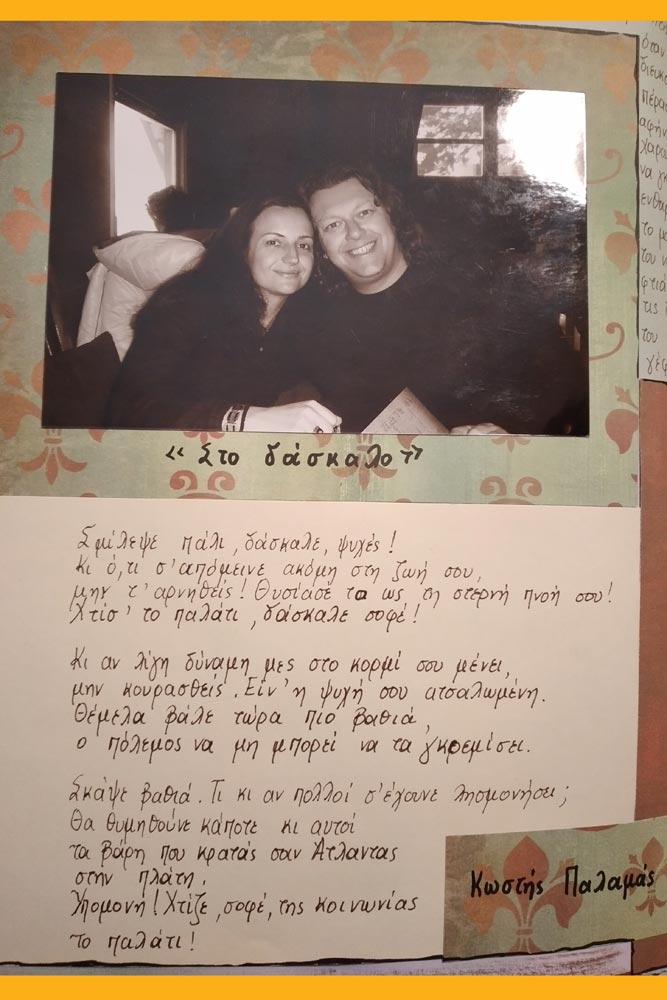 « Στο δάσκαλο »
Σμίλεψε πάλι, δάσκαλε, ψυχές!
Κι ό,τι σ'απόμεινε ακόμη στη ζωή σου,
μην τ'αρνηθείς! Θυσίασέ το ως τη στερνή πνοή σου!
Χτίσ' το παλάτι, δάσκαλε σοφέ!
Κι αν λίγη δύναμη μες στο κορμί σου μένει,
μην κουρασθείς. Είν'η ψυχή σου ατσαλωμένη.
Θέμελα βάλε τώρα πιο βαθιά,
ο πόλεμος να μη μπορεί να τα γκρεμίσει.
Σκάψε βαθιά. Τι κι αν πολλοί σ'έχουνε λησμονήσει;
Θα θυμηθούνε κάποτε κι αυτοί
τα βάρη που κρατάς σαν Άτλαντας
στην πλάτη.
Υπομονή! Χτίζε, σοφέ, της κοινωνίας
το παλάτι!
Κωστής Παλαμάς
όταν
να
το
του
τις
του